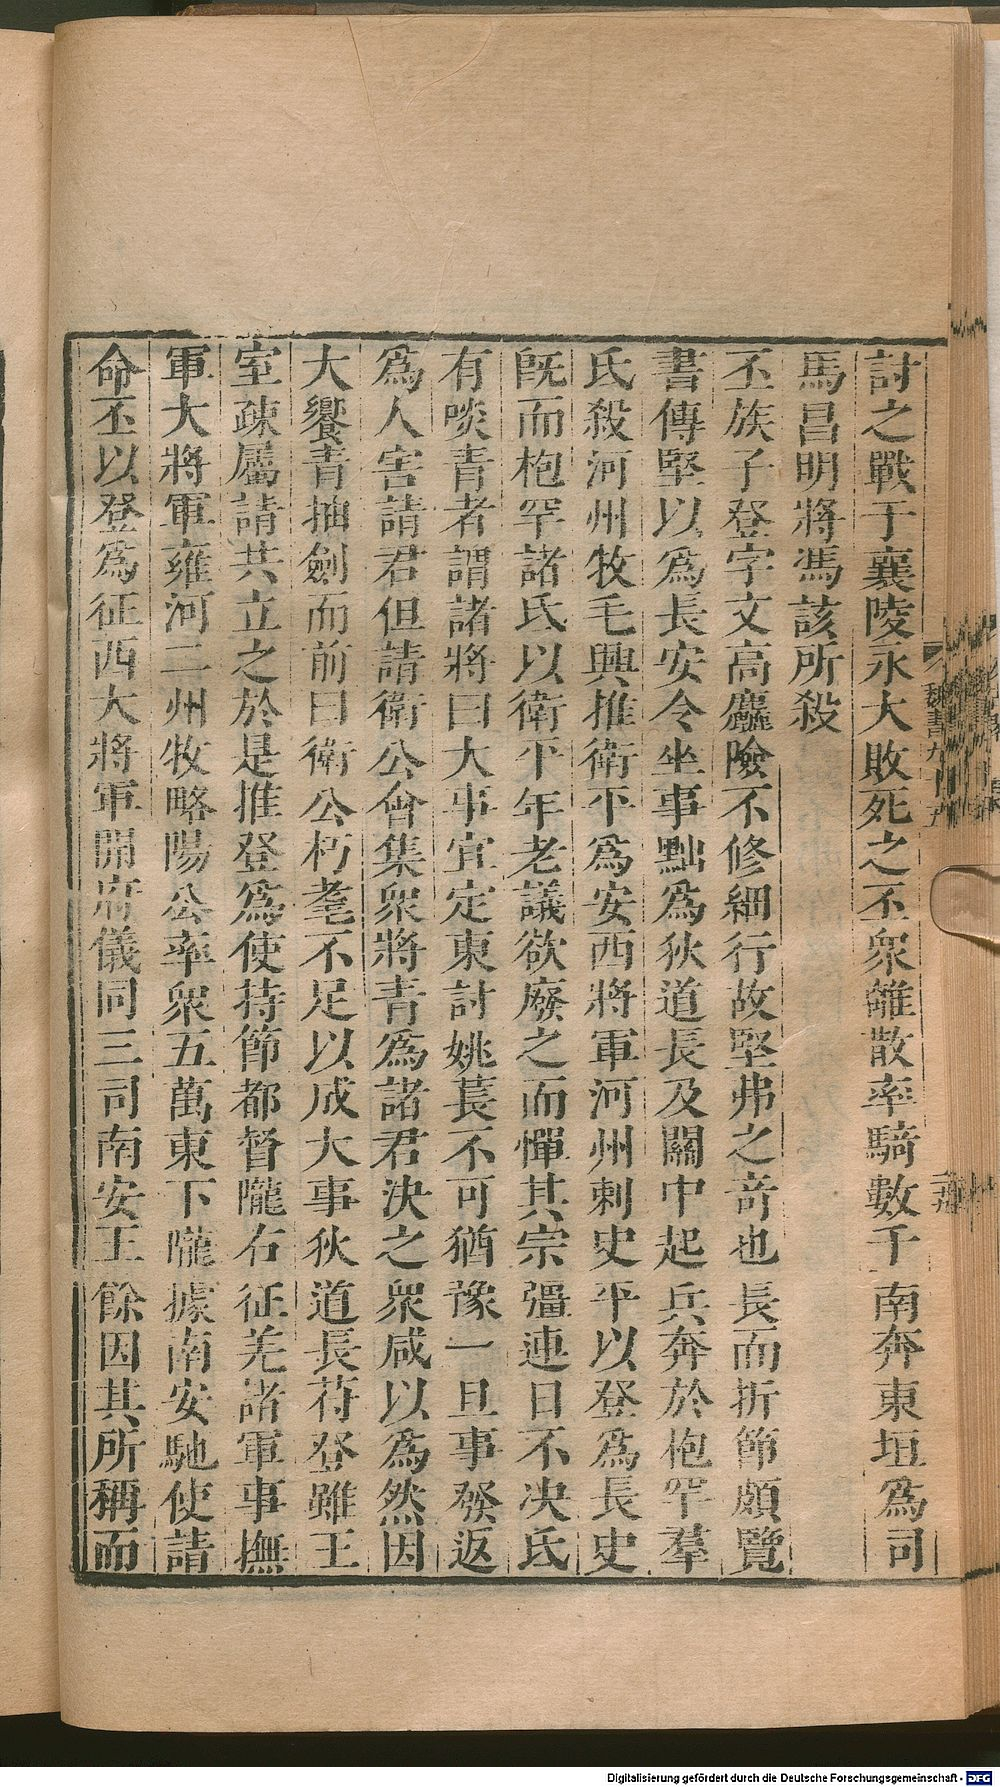 討之戰于襄陵永大敗死之丕衆離散率騎數千南奔東垣爲司
馬昌明將馮該所殺
丕族子登字文高麤險不修細行故堅弗之奇也長而折節頗覽
書傳堅以爲長安令坐事黜爲狄道長及關中起兵奔於枹罕羣
氐殺河州牧毛興推衛平爲安西將軍河州刺史平以登爲長史
旣而枹罕諸氐以衛平年老議欲廢之而憚其宗彊連日不決氐
有啖青者謂諸將曰大事宜定東討姚萇不可猶豫一旦事發返
爲人害請君但請衛公會集衆將青爲諸君決之衆咸以爲然因
大饗青抽劍而前曰衛公朽耄不足以成大事狄道長苻登雖王
室疎屬請共立之於是推登爲使持節都督隴右征羌諸軍事撫
軍大將軍雍河二州牧略陽公率衆五萬東下隴據南安馳使請
命丕以登爲征西大將軍開府儀同三司南安王餘因其所稱而
魏書九十五
Digitalisierung gefördert durch die Deutsche Forschungsgemeinschaft - DFG